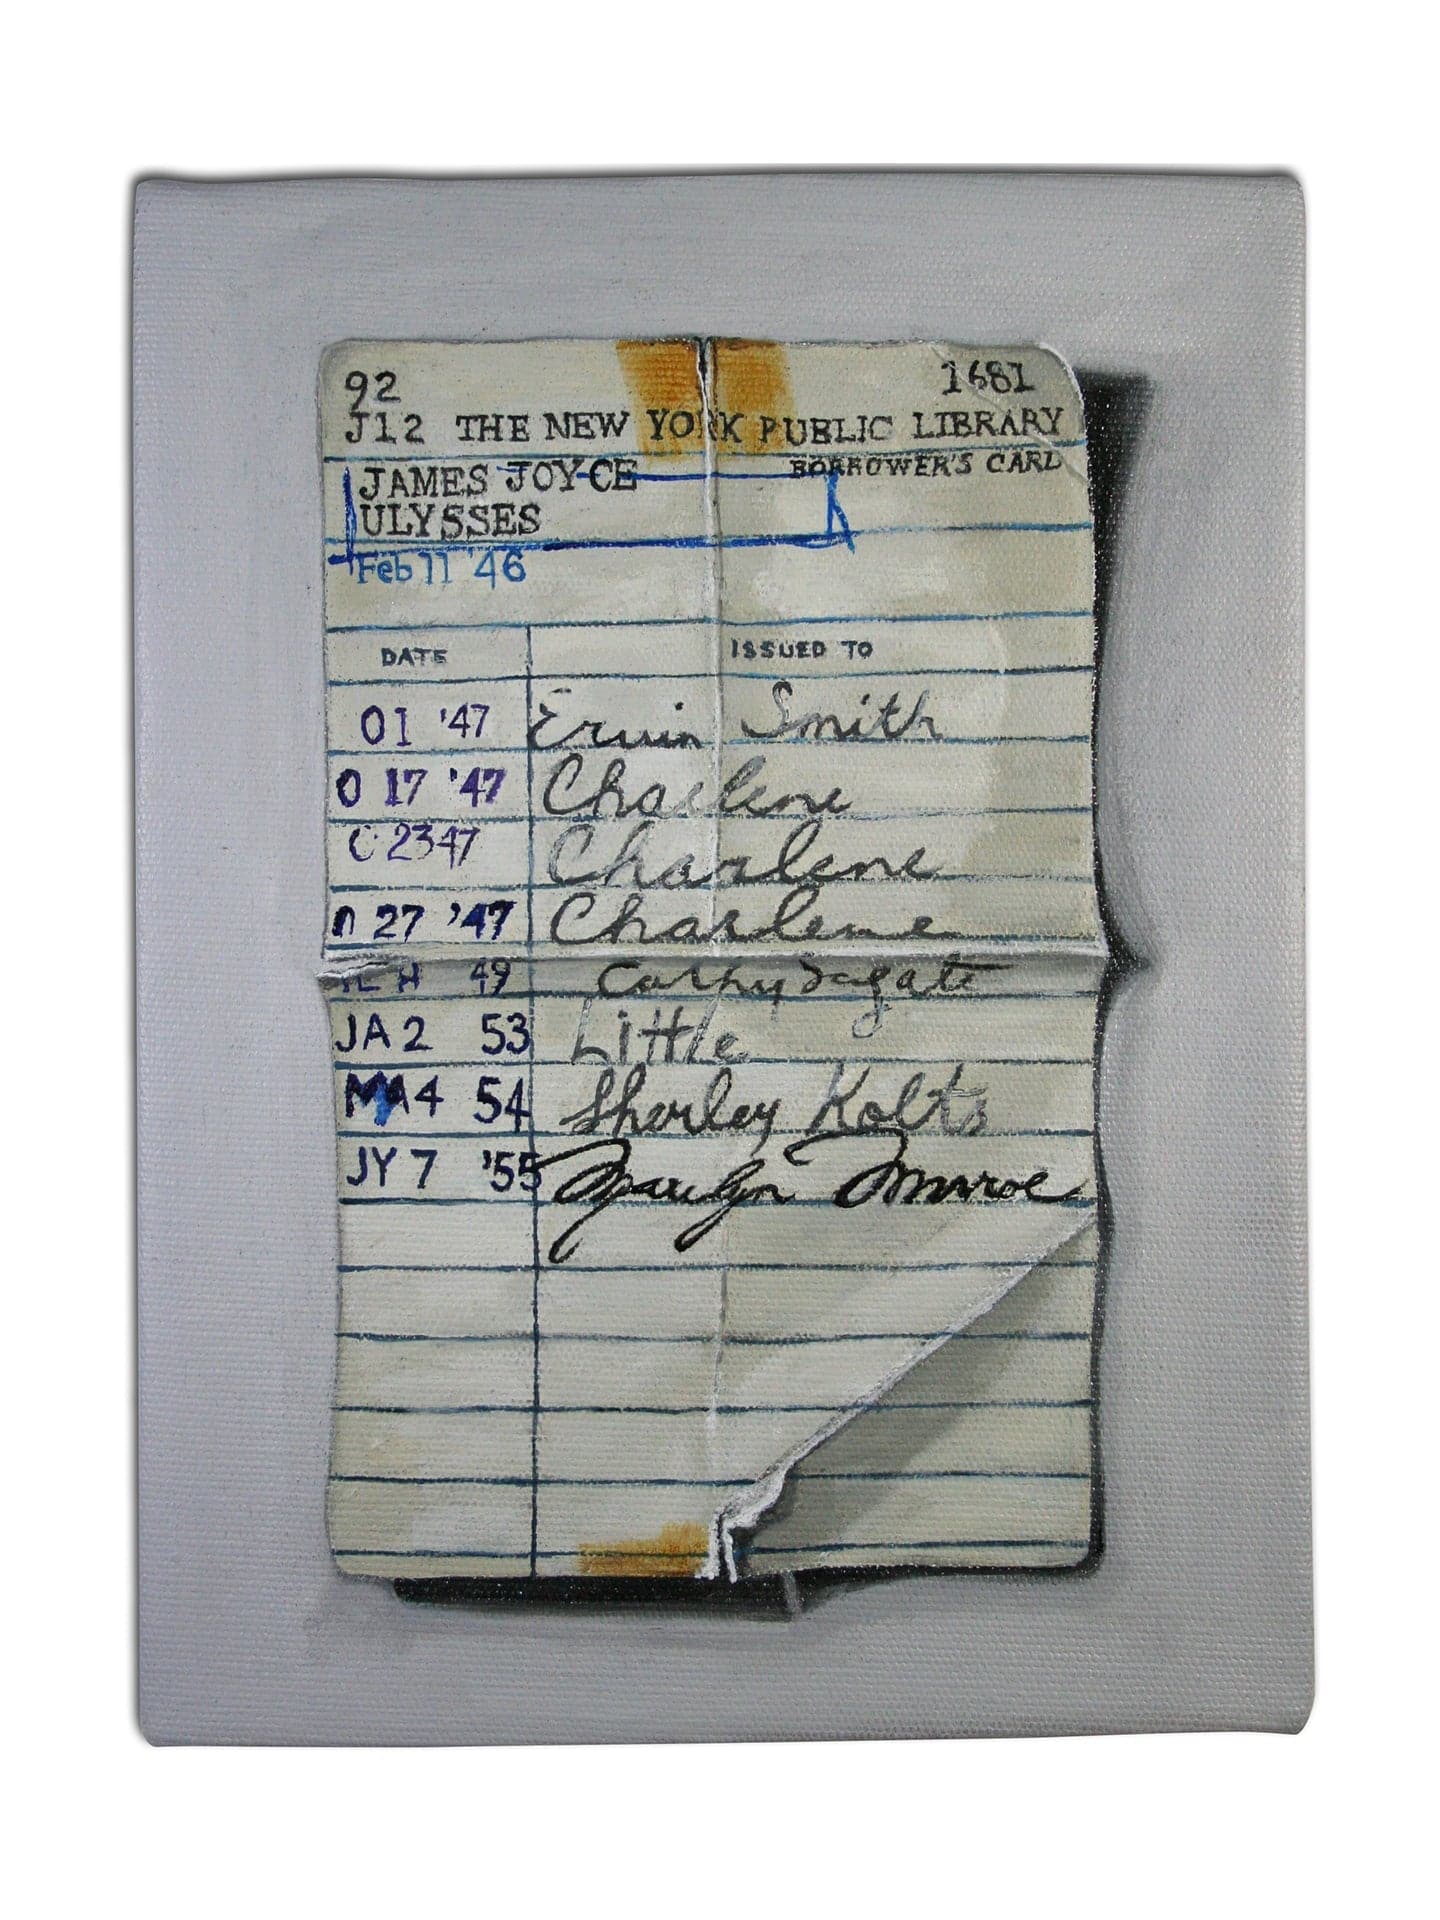 92 1681
J12 THE NEW YORK PUBLIC LIBRARY
JAMES JOYCE BORROWER'S CARD
ULYSSES
Feb 11 '46
DATE ISSUED TO
01 '47 Ervin Smith
0 17 '47 Charlene
C 23 47 Charlene
27 '47 Charlene
49
JA 2 53 Little
MA 4 54 Sherley Kolts
JY 7 '55 Marilyn Monroe